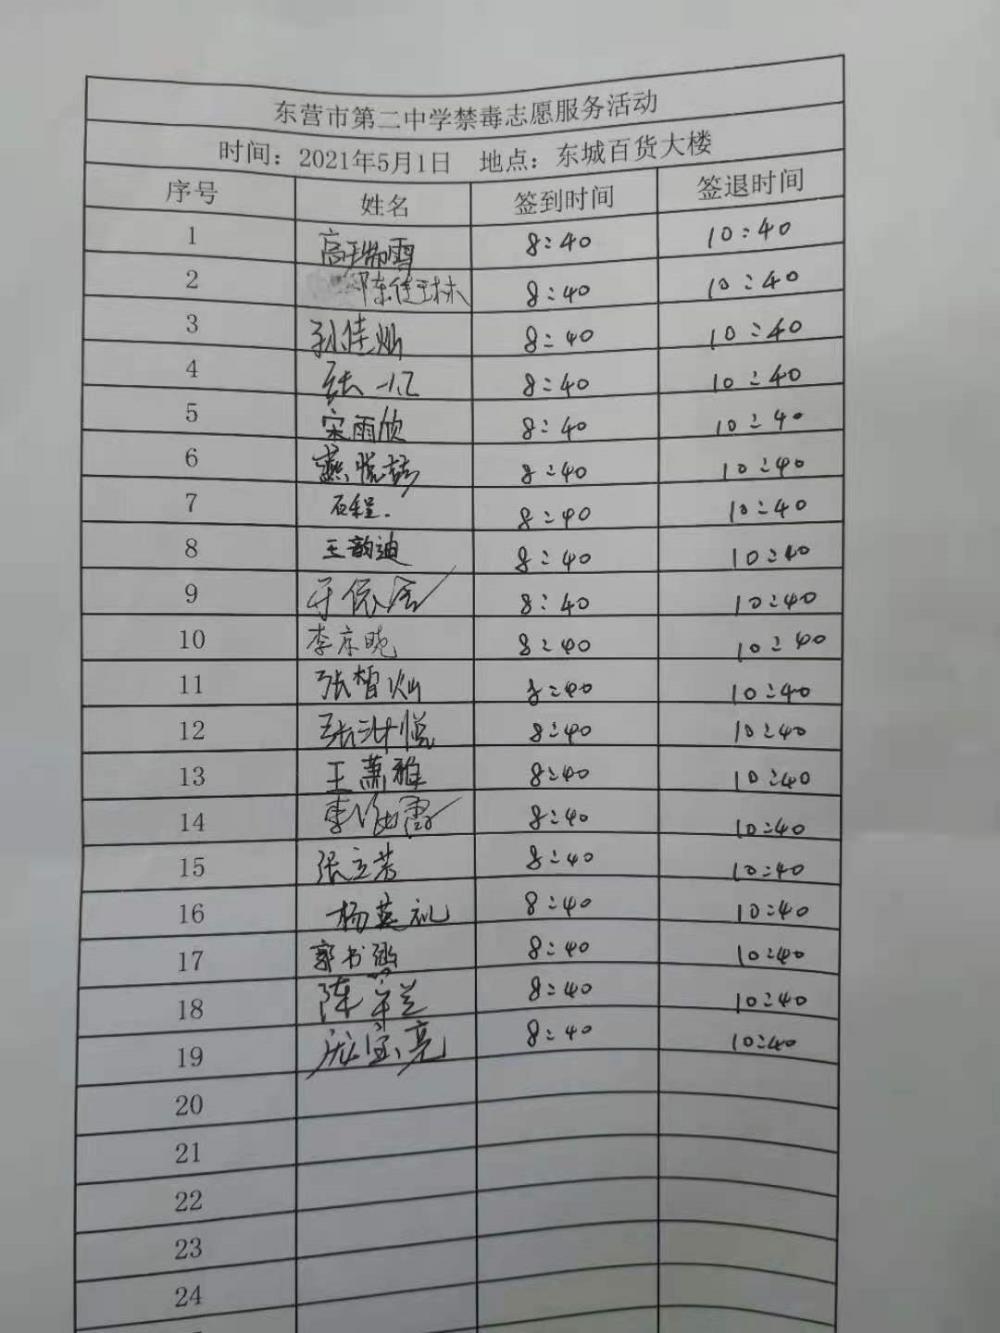 东营市第二中学禁毒志愿服务活动
时间：2021年5月1日 地点：东城百货大楼
序号 姓名 签到时间 签退时间
1 高瑞雪 8:40 10:40
2 陈佳琳 8:40 10:40
3 孙佳灿 8:40 10:40
4 张一亿 8:40 10:40
5 宋雨欣 8:40 10:40
6 燕悦 8:40 10:40
7 石程. 8:40 10:40
8 王韵迪 8:40 10:40
9 于依 8:40 10:40
10 李京晓 8:40 10:40
11 张智灿 8:40 10:40
12 张沐悦 8:40 10:40
13 王萧雅 8:40 10:40
14 李 8:40 10:40
15 张立芳 8:40 10:40
16 杨英礼 8:40 10:40
17 郭书涵 8:40 10:40
18 陈荣兰 8:40 10:40
19 宝亮 8:40 10:40
20
21
22
23
24